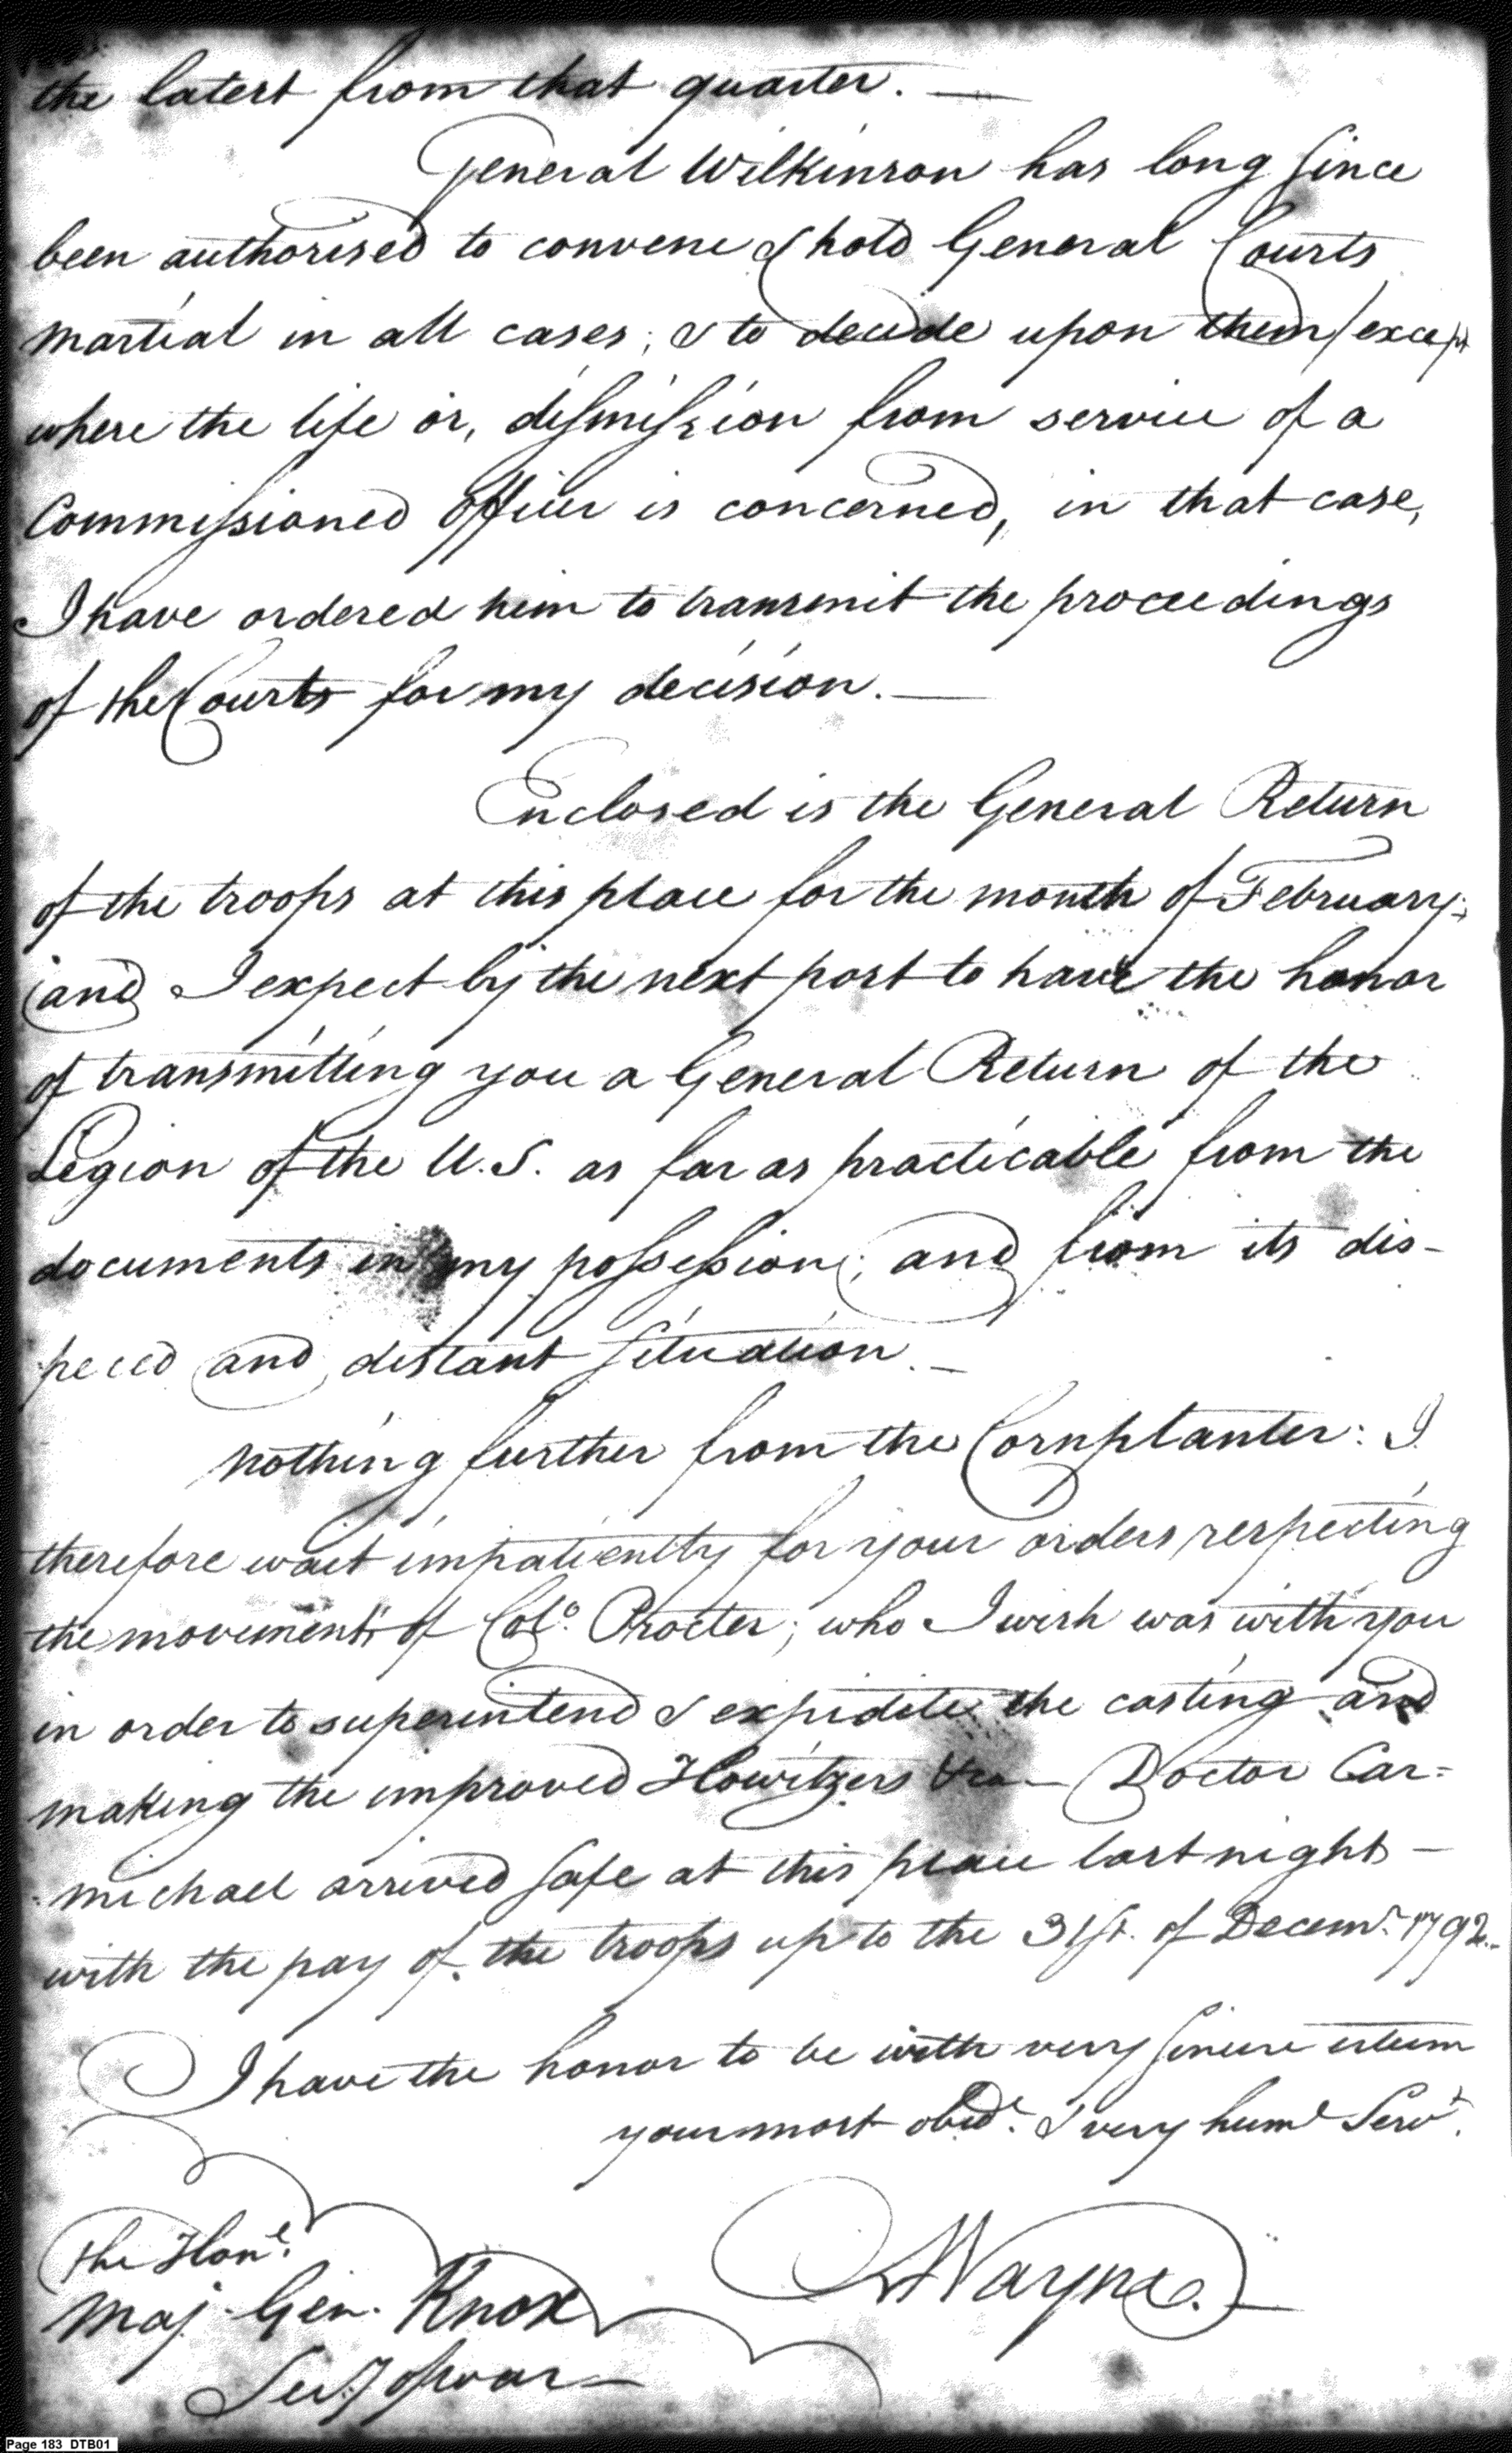 the latest from that quarter. —
General Wilkinson has long since
been authorised to convene & hold General Courts
martial in all cases; & to decide upon them/except
where the life or, dismission from service of a
Commissioned officer is concerned, in that case,
I have ordered him to transmit the proceedings
of the Courts for my decision. —
Enclosed is the General Return
of the troops at this place for the month of February;
and I expect by the next post to have the honor
of transmitting you a General Return of the
Legion of the U.S. as far as practicable from the
documents in my possession; and from its dis-
perced and distant situation. —
nothing further from the Cornplanter: I
therefore wait impatiently for your orders respecting
the movements of Colo. Procter; who I wish was with you
in order to superintend & expidite the casting and
making the improved Howitzers &ca — Doctor Car=
michael arrived safe at this place last night —
with the pay of the troops up to the 31st. of Decemr. 1792.
I have the honor to be with very sincere esteem
your most obedt. & very huml Servt.
The Honle.
Maj. Gen. Knox
Secy of war —
Wayne. —
Page 183 DTB01